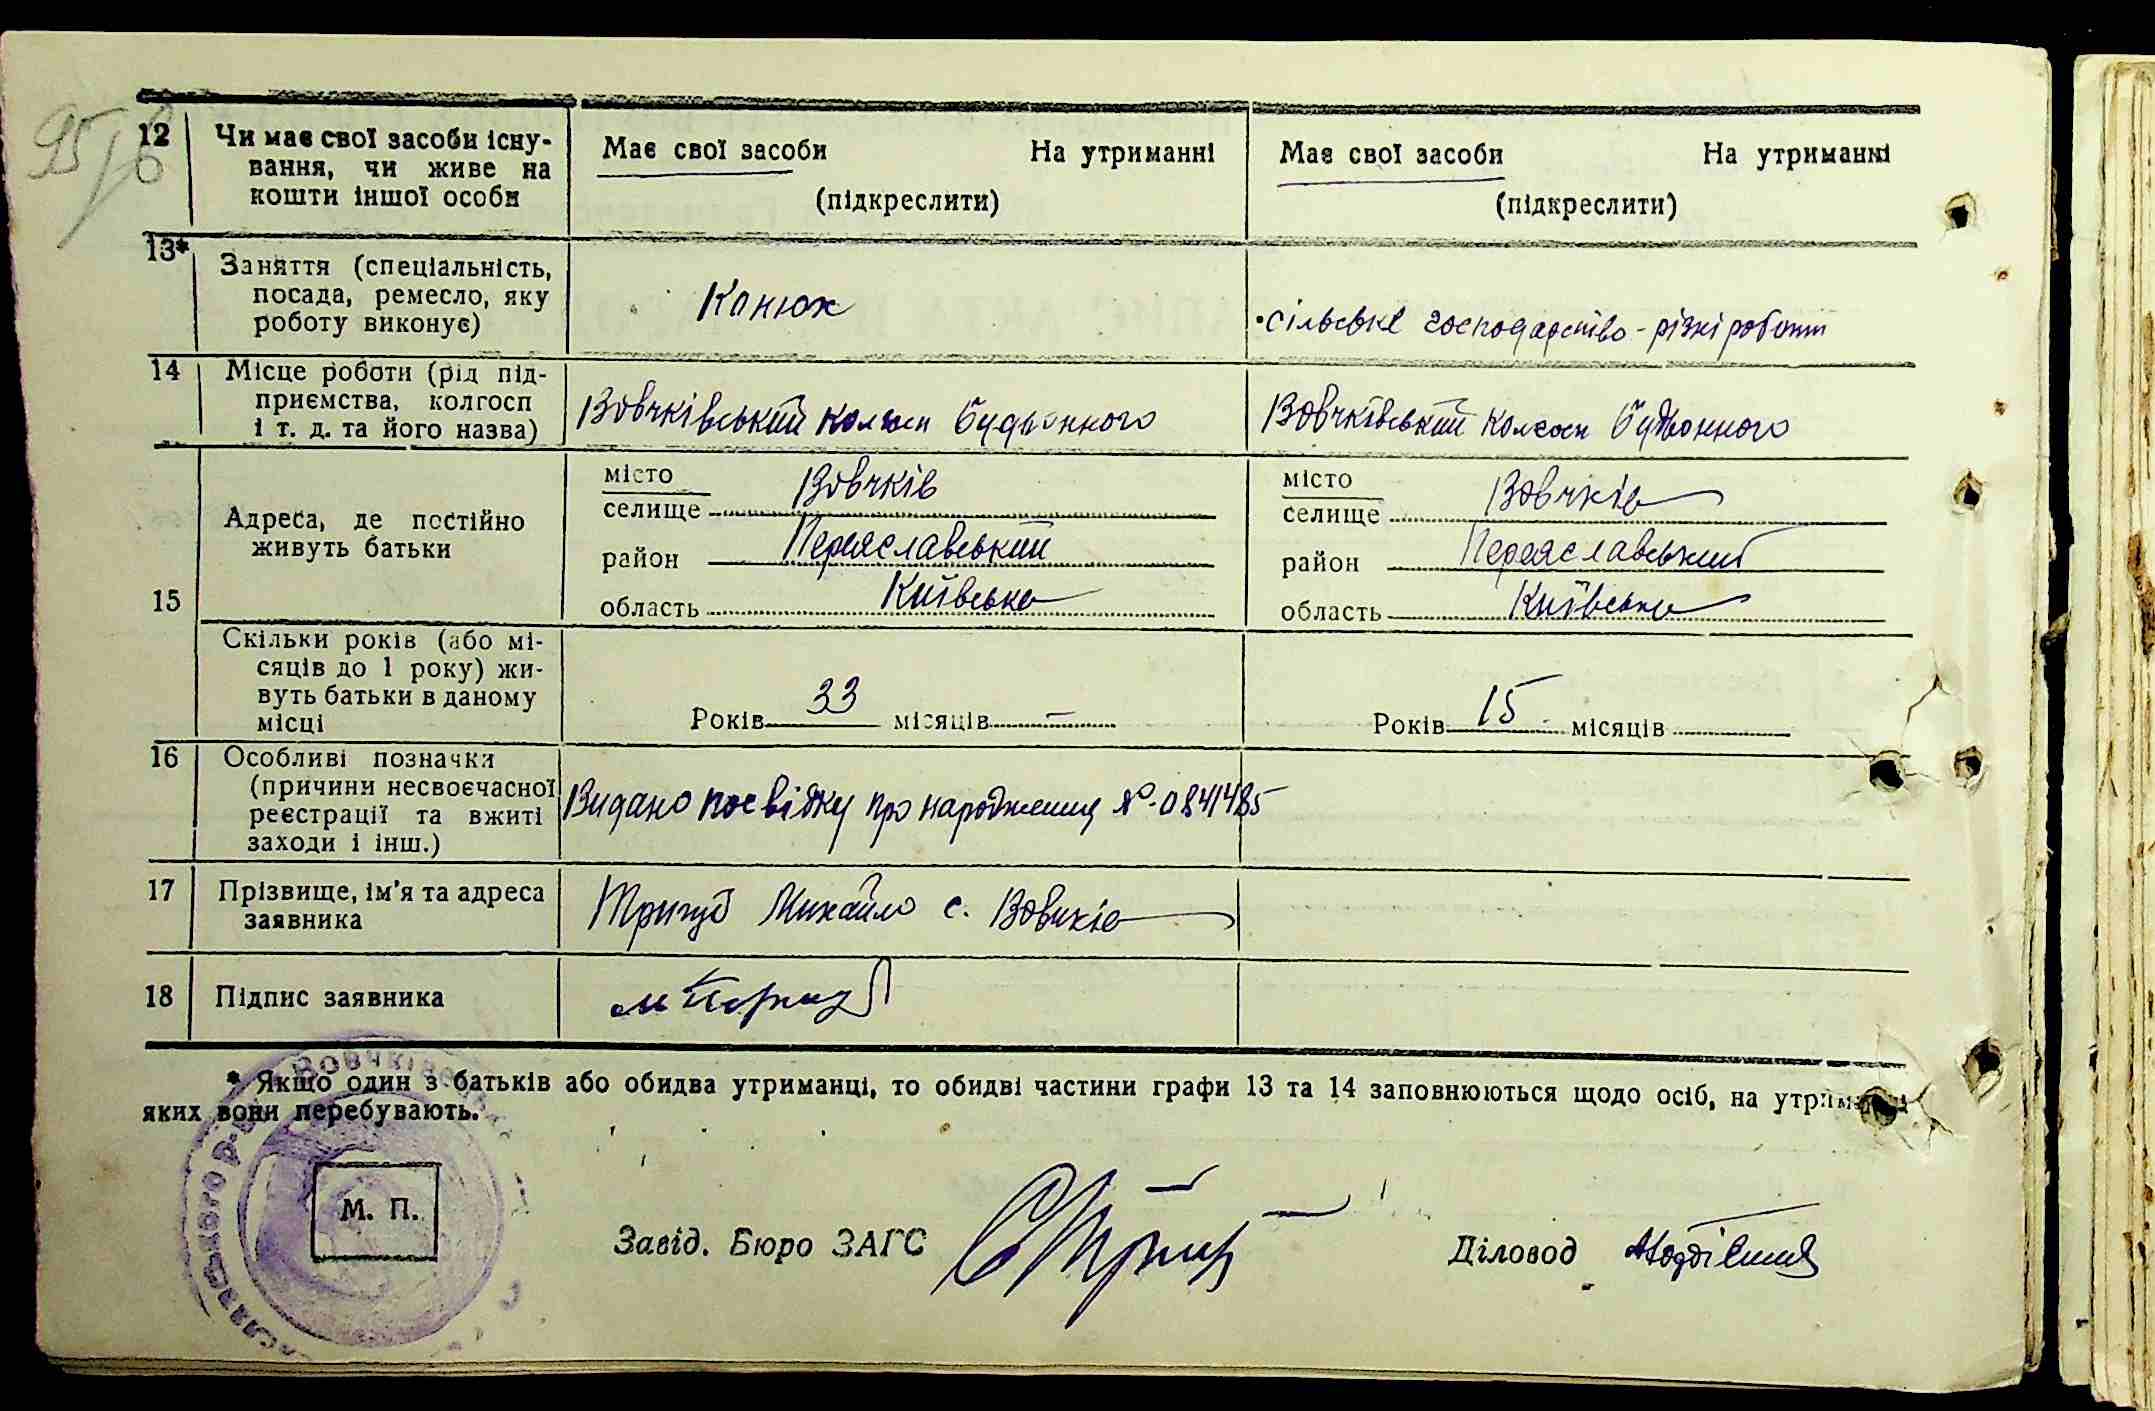 95/6
12 Чи має свої засоби існу-
вання, чи живе на
кошти іншої особи
Має свої засоби На утриманні
(підкреслити)
Має свої засоби На утриманні
(підкреслити)
13* Заняття (спеціальність,
посада, ремесло, яку
роботу виконує)
Конюх
сільське господарство - різні роботи
14 Місце роботи (рід під-
приємства, колгосп
і т. д. та його назва)
Вовчківський колгосп Будьонного
Вовчківський колгосп Будьонного
15 Адреса, де постійно
живуть батьки
місто
селище Вовчків
район Переяславський
область Київська
місто
селище Вовчків
район Переяславський
область Київська
Скільки років (або мі-
сяців до 1 року) жи-
вуть батьки в даному
місці
Років 33 місяців –
Років 15 місяців
16 Особливі позначки
(причини несвоєчасної
реєстрації та вжиті
заходи і інш.)
Видано посвідку про народження № 0841485
17 Прізвище, ім'я та адреса
заявника
Тригуб Михайло с. Вовчків
18 Підпис заявника
* Якщо один з батьків або обидва утриманці, то обидві частини графи 13 та 14 заповнюються щодо осіб, на
яких вони перебувають.
М. П.
Завід. Бюро ЗАГС
Діловод